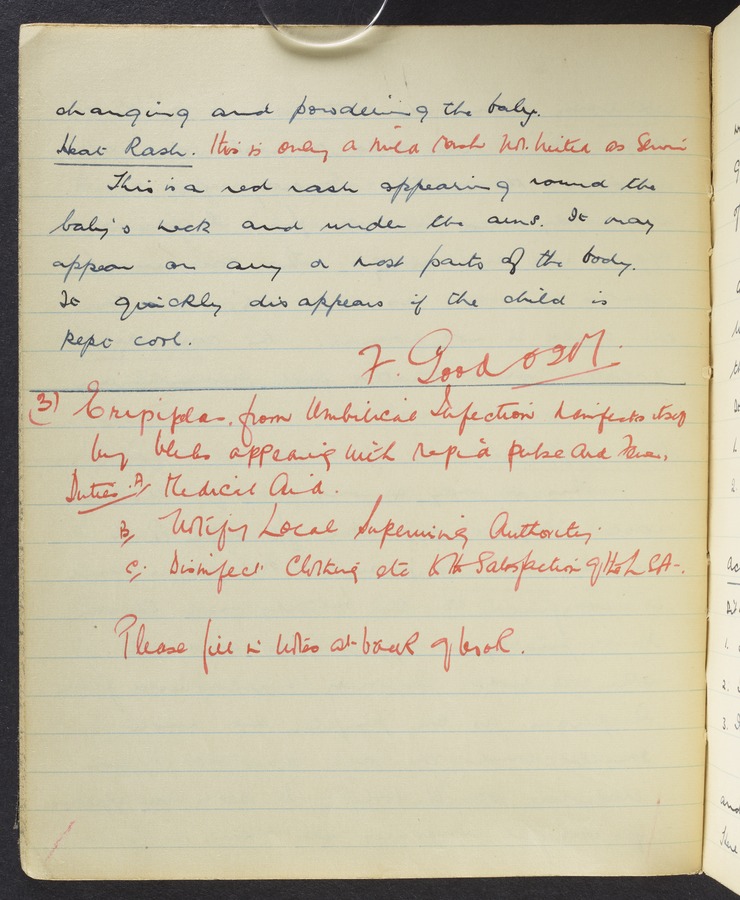 changing and powdering the baby.
Heat Rash. This is only a mild rash not treated as serious
This is a red rash appearing round the
baby's neck and under the arms. It may
appear on any or most parts of the body.
It quickly disappears if the child is
kept cool.
F. Good
3) from Umbilical Infection manifests itself
by blebs appearing with rapid pulse and Fever.
Duties. A/ Medical Aid.
B/ Notify Local Supervising Authority.
C/. Disinfect Clothing etc to the Satisfaction of the L S A.
Please fill in notes at back of book.